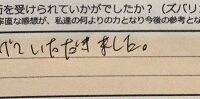 術を受けられていかがでしたか？（ズバリ
率直な感想が、私達の何よりの力となり今後の参考とな
いただきました。